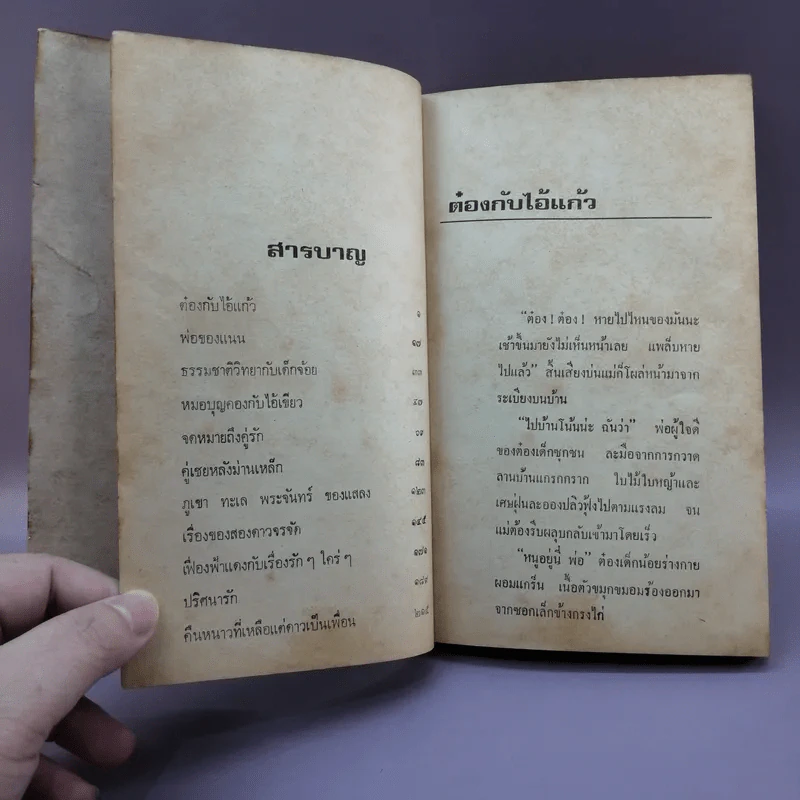 สารบาญ
ต๋องกับไอ้แก้ว ๑
พ่อของแนน ๑๗
ธรรมชาติวิทยากับเด็กจ้อย ๓๓
หมอบุญคองกับไอ้เขียว ๔๗
จดหมายถึงคู่รัก ๖๙
คู่เชยหลังม่านเหล็ก ๘๓
ภูเขา ทะเล พระจันทร์ ของแสลง ๑๒๓
เรื่องของสองดาวจรจัด ๑๔๕
เฟื่องฟ้าแดงกับเรื่องรัก ๆ ใคร่ ๆ ๑๗๑
ปริศนารัก ๑๘๙
คืนหนาวที่เหลือแต่ดาวเป็นเพื่อน ๒๑๕
ต๋องกับไอ้แก้ว
“ต๋อง ! ต๋อง ! หายไปไหนของมันนะ
เช้าขึ้นมายังไม่เห็นหน้าเลย แพล็บหาย
ไปแล้ว” สิ้นเสียงบ่นแม่ก็โผล่หน้ามาจาก
ระเบียงบนบ้าน
“ไปบ้านโน้นน่ะ ฉันว่า” พ่อผู้ใจดี
ของต๋องเด็กซุกซน ละมือจากการกวาด
ลานบ้านแกรกกราก ใบไม้ใบหญ้าและ
เศษฝุ่นละอองปลิวฟุ้งไปตามแรงลม จน
แม่ต้องรีบผลุบกลับเข้ามาโดยเร็ว
“หนูอยู่นี่ พ่อ” ต๋องเด็กน้อยร่างกาย
ผอมแกร็น เนื้อตัวขมุกขมอมร้องออกมา
จากซอกเล็กข้างกรงไก่